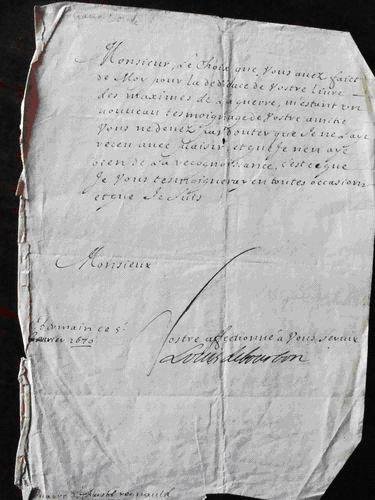 Monsieur, Le Choix que vous auez faict
de Moy pour la dedicace de vostre liure
des maximes de la guerre, m'estant un
nouueau tesmoignage de vostre amitié
Vous ne deuez pas douter que Je ne l'aye
receu auec plaisir, et que Je n'en aye
bien de la recognoissance, c'est ce que
Je vous tesmoigneray en toutes occasions
et que Je suis
Monsieur
Germain ce 5e
feurier 1670
Vostre affectionné à vous seruir
Louis de bourbon